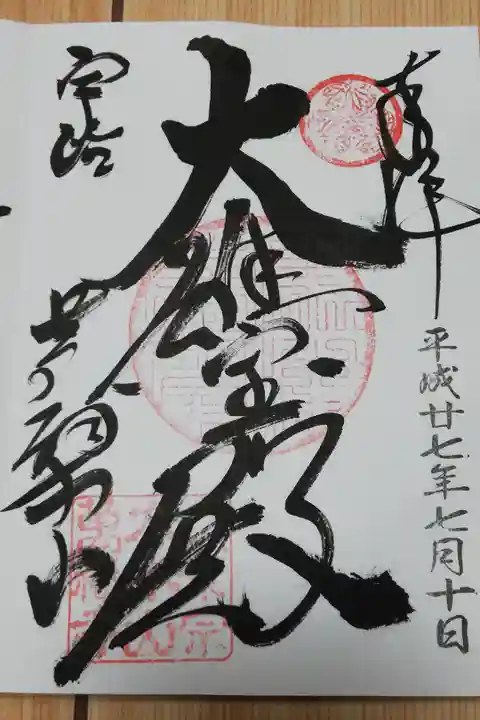 奉拝
平成廿七年七月十日
大雄宝殿
宇治
黄檗山